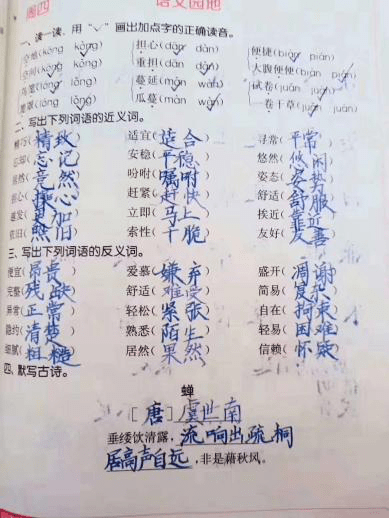 周四 语文园地
一、读一读,用“√”画出加点字的正确读音。
空地(kōng kòng) 担心(dān dàn) 便捷(biàn pián)
空间(kōng kòng) 重担(dān dàn) 大腹便便(biàn pián)
笼(lóng lǒng) 蔓延(màn wàn) 试卷(juàn juǎn)
笼罩(lóng lǒng) 瓜蔓(màn wàn) 一卷干草(juàn juǎn)
二、写出下列词语的近义词。
精巧(精致) 适宜(适合) 寻常(平常)
忘却(忘记) 安稳(平稳) 悠然(悠闲)
居然(竟然) 吩咐(嘱咐) 姿态(姿势)
担心(操心) 赶紧(赶快) 舒适(舒服)
越发(更加) 立即(马上) 挨近(靠近)
依旧(照旧) 索性(干脆) 友好(友善)
三、写出下列词语的反义词。
便宜(昂贵) 爱慕(嫌弃) 盛开(凋谢)
完整(残缺) 舒适(难受) 简易(复杂)
异常(正常) 轻松(紧张) 自在(拘束)
隐约(清楚) 熟悉(陌生) 轻易(困难)
细腻(粗糙) 居然(果然) 信赖(怀疑)
四、默写古诗。
蝉
[唐]虞世南
垂緌饮清露,流响出疏桐
居高声自远,非是藉秋风。